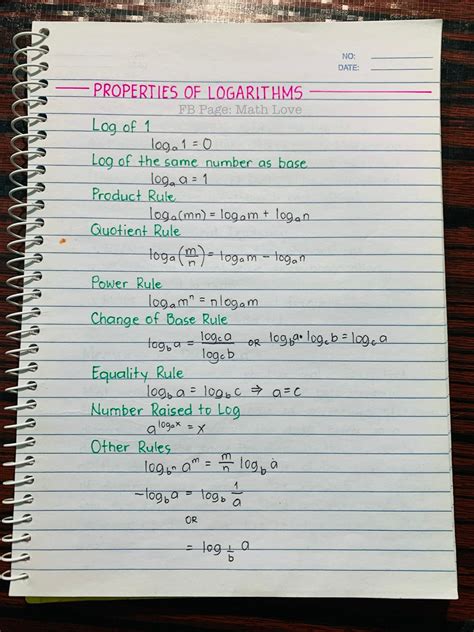 NO:
DATE:
PROPERTIES OF LOGARITHMS
FB Page: Math Love
Log of 1
logₐ 1 = 0
Log of the same number as base
logₐ a = 1
Product Rule
logₐ(mn) = logₐm + logₐn
Quotient Rule
logₐ(m/n) = logₐm − logₐn
Power Rule
logₐmⁿ = nlogₐm
Change of Base Rule
log_b a = log_c a / log_c b OR log_b a • log_c b = log_c a
Equality Rule
log_b a = log_b c ⇒ a = c
Number Raised to Log
a^(logₐx) = x
Other Rules
log_(bⁿ) a^m = m/n log_b a
−log_b a = log_b 1/a
OR
= log_(1/b) a